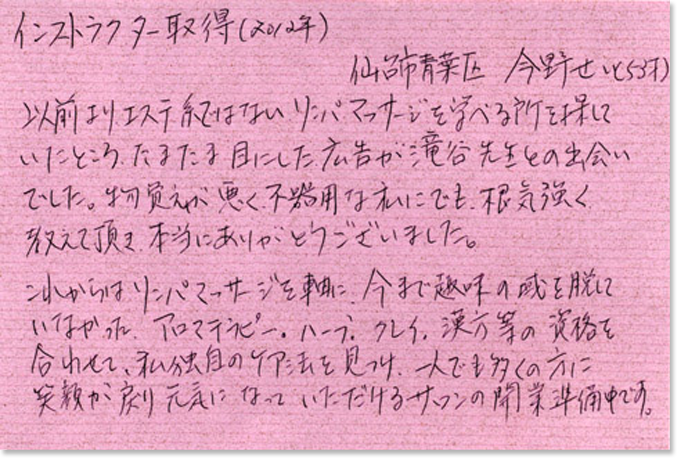 インストラクター取得(2012年)
仙台市青葉区 今野せいと(53才)
以前よりエステ系ではないリンパマッサージを学べる所を探して
いたところ、たまたま目にした広告が滝谷先生との出会い
でした。物覚えが悪く不器用な私にでも、根気強く
教えて頂き本当にありがとうございました。
これからはリンパマッサージを軸に、今まで趣味の域を脱して
いなかった、アロマテラピー、ハーブ、クレイ、漢方等の資格を
合わせて、私独自のケア法を見つけ、一人でも多くの方に
笑顔が戻り元気になっていただけるサロンの開業準備中です。